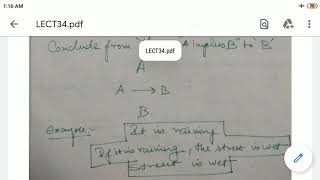 1:16 AM
LECT34.pdf
Conclude from "A implies B" to 'B'
LECT34.pdf
A
A → B
B.
Example:-
It is raining
If it is raining, the street is wet
street is wet